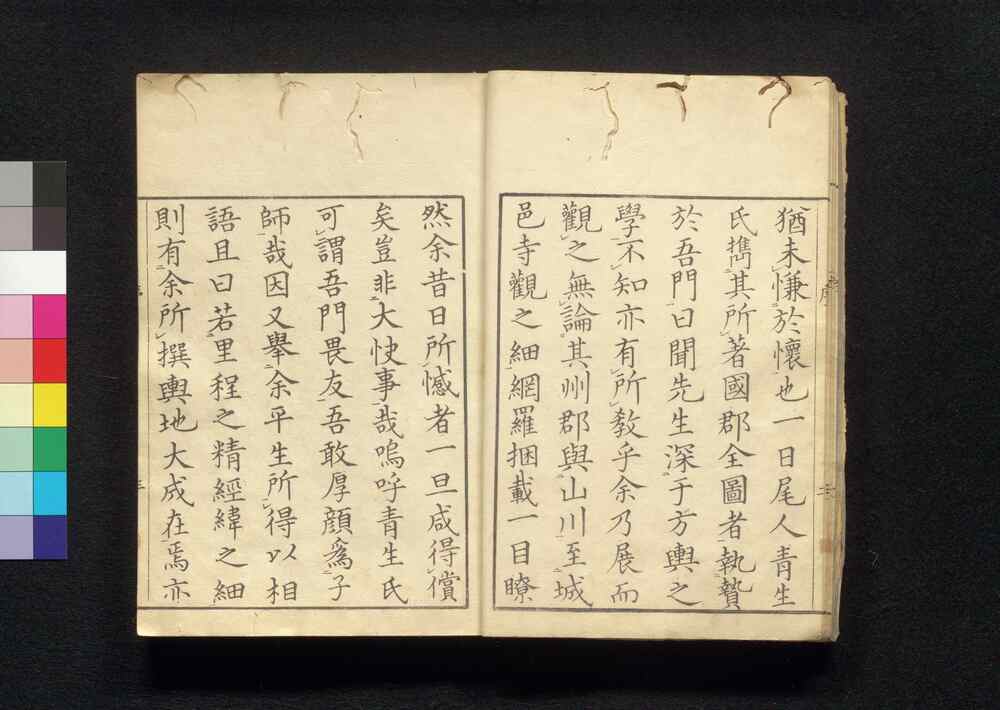 猶未慊於懷也一日尾人青生
氏擕其所著國郡全圖者執贄
於吾門曰聞先生深于方輿之
學不知亦有所教乎余乃展而
觀之無論其州郡與山川至城
邑寺觀之細網羅捆載一目瞭
然余昔日所憾者一旦咸得償
矣豈非大快事哉嗚呼青生氏
可謂吾門畏友吾敢厚顔爲子
師哉因又舉余平生所得以相
語且曰若里程之精經緯之細
則有余所撰輿地大成在焉亦